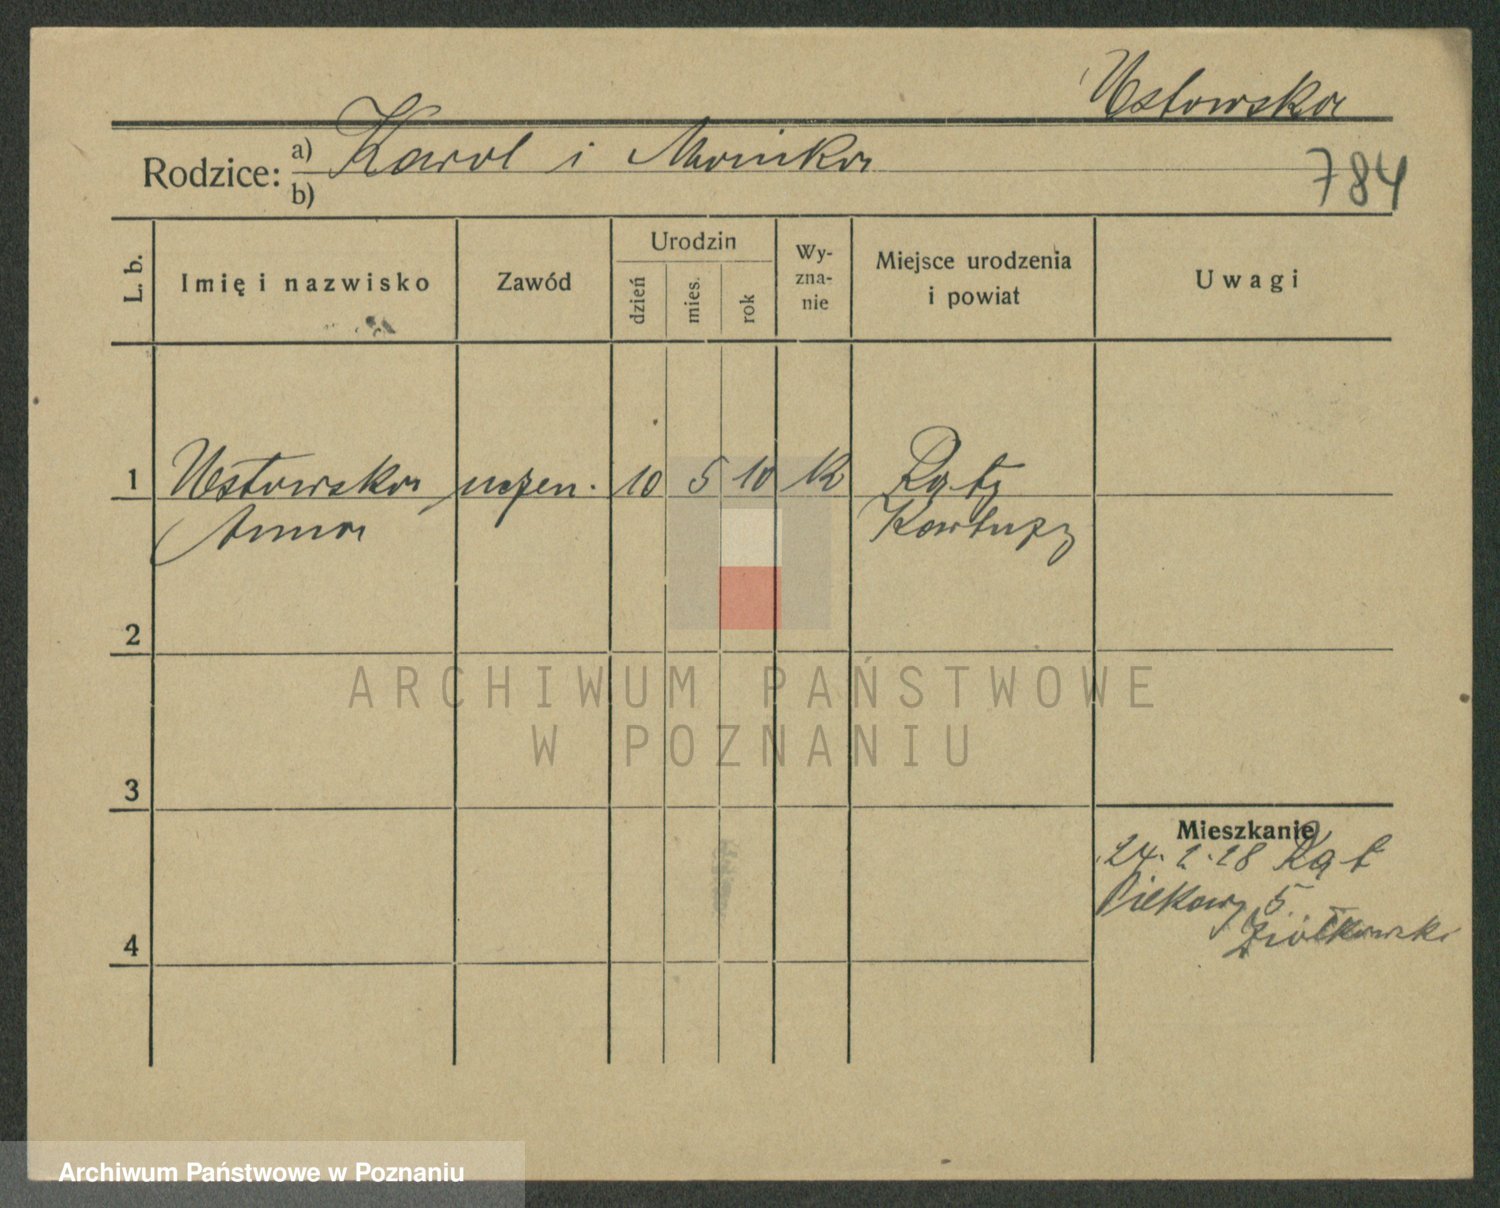 Ustowska
Rodzice: a) Karol i Monika
b)
784
L. b.
Imię i nazwisko
Zawód
Urodzin
dzień
mies.
rok
Wy-
zna-
nie
Miejsce urodzenia
i powiat
Uwagi
1 Ustowska uczen. 10 5 10 K Rąty
Anna Kartuzy
2
ARCHIWUM PAŃSTWOWE
W POZNANIU
3
Mieszkanie
24. 2. 28 Kąt
Piekary 5
Ziółkowski
4
Archiwum Państwowe w Poznaniu